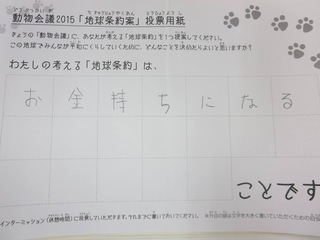 どうぶつかいぎ ちきゅうじょうやくあん とうひょうようし
動物会議2015「地球条約案」投票用紙
きょうの「動物会議」に、あなたが考える「地球条約」を1つ提案してください。
この地球でみんなが平和にくらしていくために、どんなことを決めたらよいと思いますか?
わたしの考える「地球条約」は、
お金持ちになる
ことです
インターミッション(休憩時間)に投票していただきます。それまでに書いておいてください。